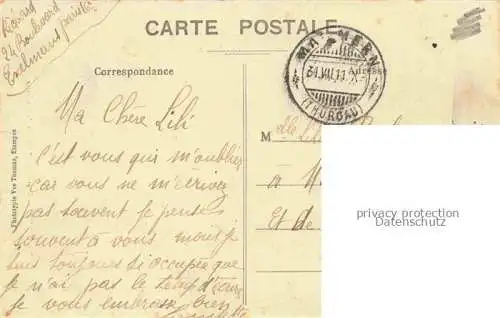 24 Boulevard
Exelmans, Paris
CARTE POSTALE
Correspondance
Adresse
MAMMERN
31.VII.11
(THURGAU)
Ma Chère Lili
M
C'est vous qui m'oubliez
car vous ne m'écrivez
à
pas souvent je pense
Et de
souvent à vous mais je
suis toujours si occupée que
je n'ai pas le temps d'écrire
Je vous embrasse bien
Phototypie Vve Thomas, Etampes
privacy protection
Datenschutz